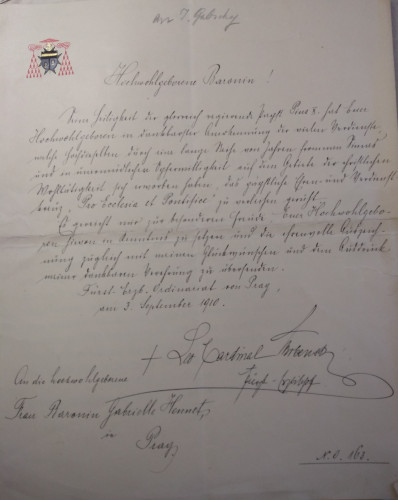 Hochwohlgeborene Baronin!
Seine Heiligkeit der glorreich regierende Papst Pius X. hat Euer
Hochwohlgeboren in dankbarster Anerkennung der vielen Verdienste,
welche Hochdieselben durch eine lange Reihe von Jahren frommen Sinnes
und in unermüdlicher Opferwilligkeit auf dem Gebiete der christlichen
Wohltätigkeit sich erworben haben, das päpstliche Ehren und Verdienst
kreuz „Pro Ecclesia et Pontifice" zu verleihen geruht.
Es gereicht mir zur besonderen Freude Euer Hochwohlgebo-
ren hievon in Kenntnis zu setzen und die ehrenvolle Auszeich-
nung zugleich mit meinen Glückwünschen und dem Ausdruck
meiner dankbaren Verehrung zu übersenden.
Fürst. Erzb. Ordinariat von Prag,
am 3. September 1910.
+ Leo Cardinal Skrbensky
Fürst-Erzbischof
An die hochwohlgeborene
Frau Baronin Gabrielle Hennet,
in
Prag
N.E. 162.